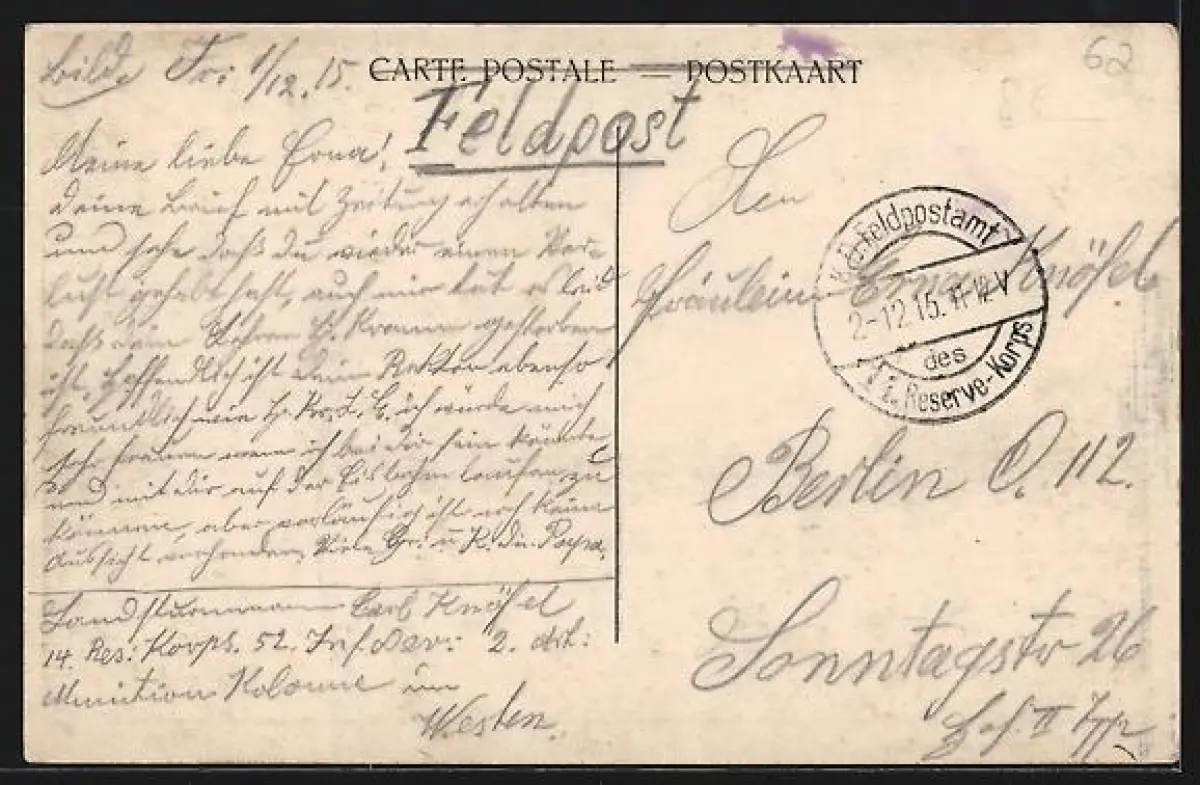 CARTE POSTALE — POSTKAART
62
Feldpost
1/12.15.
Meine liebe Erna!
deine Brief mit Zeitung erhalten
und sehe daß du wieder einen Ver-
lust gehabt hast, auch mir tut es leid
daß dein Lehrer H. Kramm gestorben
ist, hoffendlich ist dein Rektor ebenso
freundlich wie H. Kr. ich würde mich
sehr freuen wenn ich bei dir sein könnte
und mit dir auf der Eisbahn laufen zu
können, aber vorläufich ist noch keine
Aussicht vorhanden, Viele Gr. u. K. dein Papa.
Landsturmmann Carl Knöfel
14. Res: Korps. 52. Inf. 2. Abt:
Munition Kolonne im
Westen.
An
Fräulein Erna Knöfel
Berlin O. 112.
Sonntagstr 26
Hof. II Trp
K.D. Feldpostamt
2-12.15. 11-12 V
des
Reserve-Korps